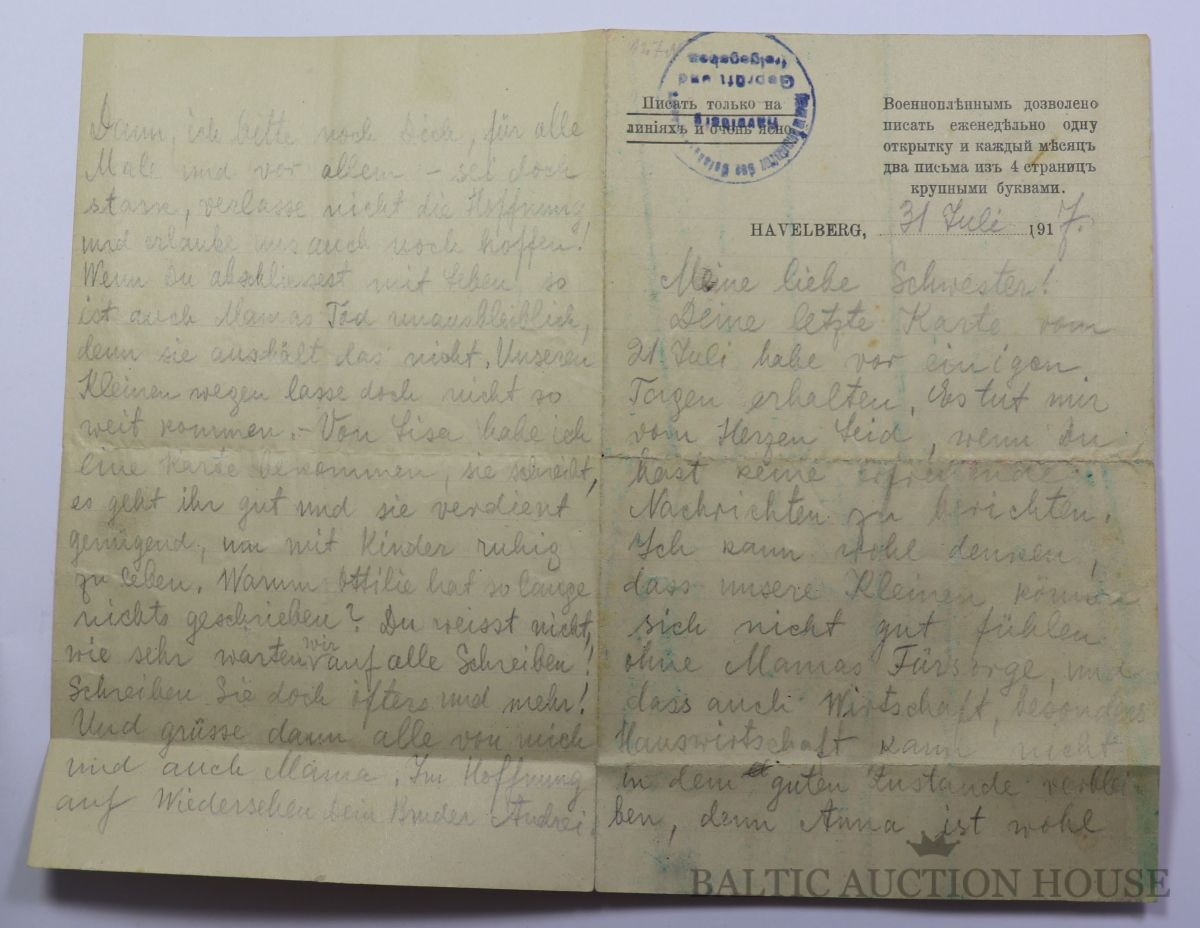 Писать только на
линіяхъ и очень ясно
Geprüft und
freigegeben
Havelberg
Военноплѣннымъ дозволено
писать еженедѣльно одну
открытку и каждый мѣсяцъ
два письма изъ 4 страницъ
крупными буквами.
HAVELBERG, 31 Juli 1917.
Meine liebe Schwester!
Deine letzte Karte vom
21. Juli habe vor einigen
Tagen erhalten. Es tut mir
vom Herzen Leid, wenn Du
hast keine erfreuende
Nachrichten zu berichten.
Ich kann wohl denken,
dass unsere Kleinen können
sich nicht gut fühlen
ohne Mamas Fürsorge, und
dass auch Wirtschaft, besonders
Hauswirtschaft kann nicht
in dem guten Zustande verblei-
ben, denn Anna ist wohl
Dann, ich bitte noch Dich, für alle
Male und vor allem – sei doch
stark, verlasse nicht die Hoffnung
und erlaube uns auch noch hoffen!
Wenn Du abschliessest mit Leben, so
ist auch Mamas Tod unausbleiblich,
denn sie aushält das nicht. Unseren
Kleinen wegen lasse doch nicht so
weit kommen. – Von Lisa habe ich
eine Karte bekommen, sie schreibt,
es geht ihr gut und sie verdient
genügend, um mit Kinder ruhig
zu leben. Warum Ottilie hat so lange
nichts geschrieben? Du weisst nicht,
wie sehr warten wir auf alle Schreiben!
Schreiben Sie doch öfters und mehr!
Und grüsse dann alle von mich
und auch Mama. Im Hoffnung
auf Wiedersehen Dein Bruder Andrei.
BALTIC AUCTION HOUSE